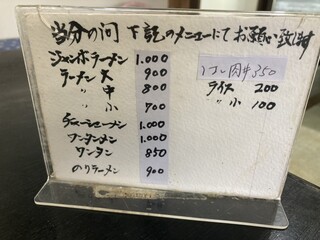 当分の間 下記のメニューにてお願い致します
ジャンボラーメン 1.000
ラーメン 大 900
〃 中 800
〃 小 700
チャーシューメン 1.000
ワンタンメン 1.000
ワンタン 850
のりラーメン 900
肉中 350
ライス 200
〃 小 100